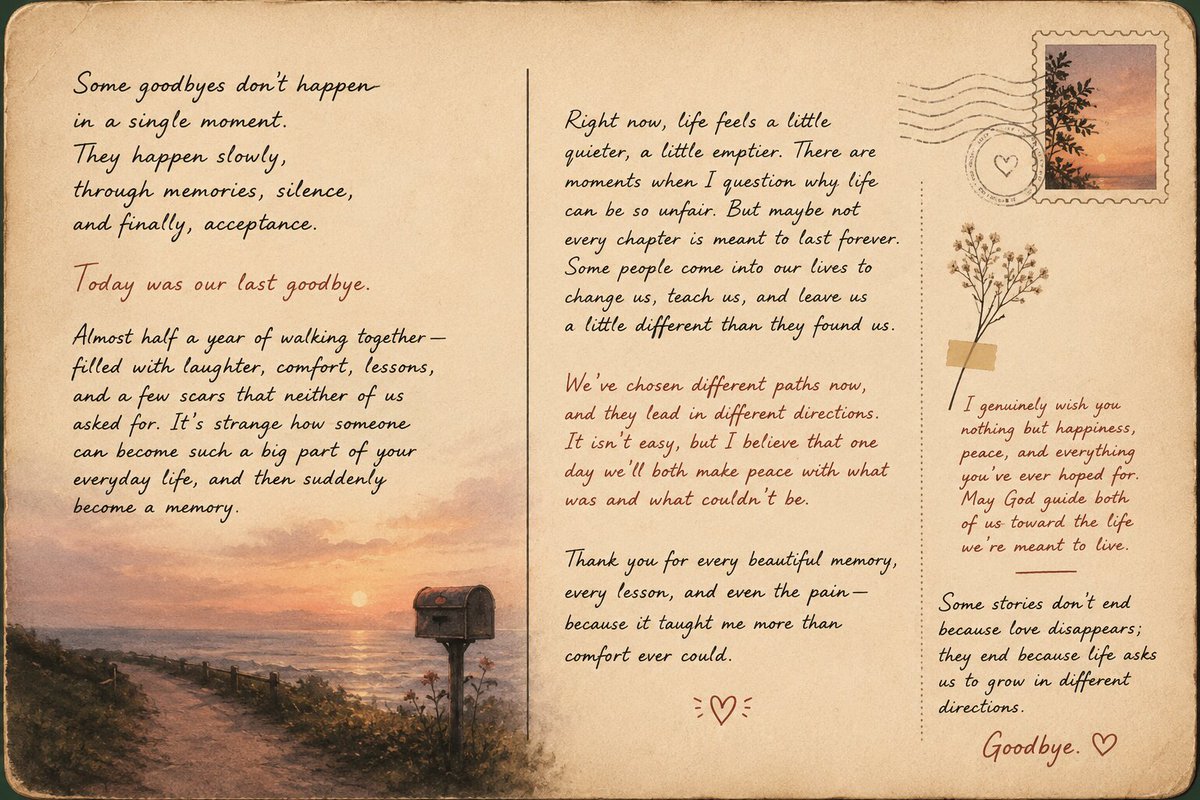 Some goodbyes don't happen
in a single moment.
They happen slowly,
through memories, silence,
and finally, acceptance.
Today was our last goodbye.
Almost half a year of walking together—
filled with laughter, comfort, lessons,
and a few scars that neither of us
asked for. It's strange how someone
can become such a big part of your
everyday life, and then suddenly
become a memory.
Right now, life feels a little
quieter, a little emptier. There are
moments when I question why life
can be so unfair. But maybe not
every chapter is meant to last forever.
Some people come into our lives to
change us, teach us, and leave us
a little different than they found us.
We've chosen different paths now,
and they lead in different directions.
It isn't easy, but I believe that one
day we'll both make peace with what
was and what couldn't be.
Thank you for every beautiful memory,
every lesson, and even the pain—
because it taught me more than
comfort ever could.
I genuinely wish you
nothing but happiness,
peace, and everything
you've ever hoped for.
May God guide both
of us toward the life
we're meant to live.
Some stories don't end
because love disappears;
they end because life asks
us to grow in different
directions.
Goodbye.